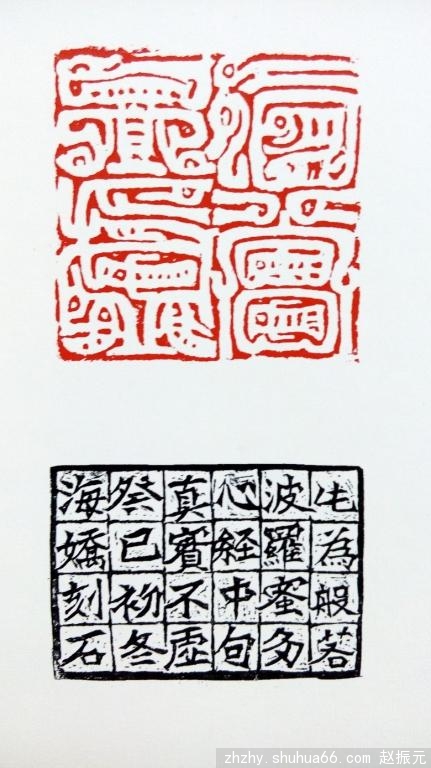 此為般若
波羅蜜多
心經中句
真實不虛
癸巳初冬
海嬌刻石
zhzhy.shuhua66.com 赵振元